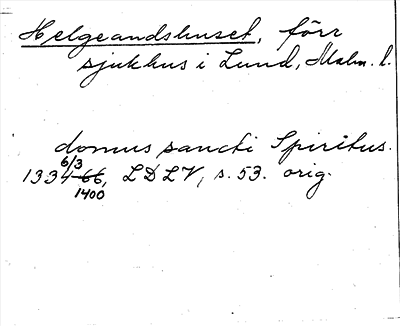 Helgeandshuset, förr
sjukhus i Lund, Malm. l.
domus sancti Spiritus.
6/3
1334-66, LDLV, s. 53. orig.
1400